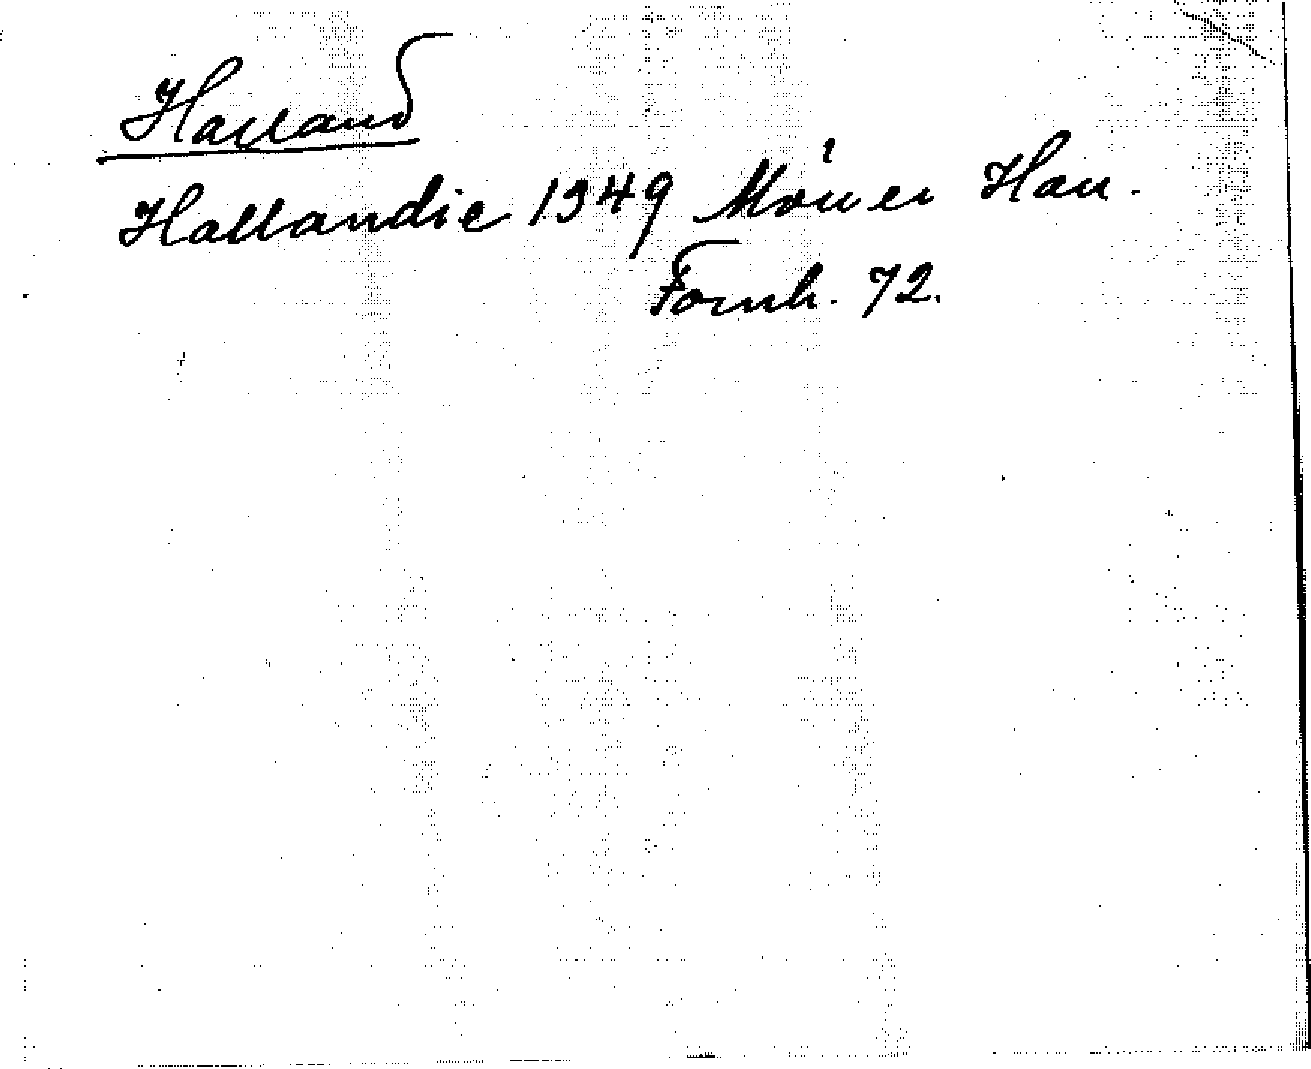 Halland
Hallandie 1349 Möller Hall.
Fornh. 72.